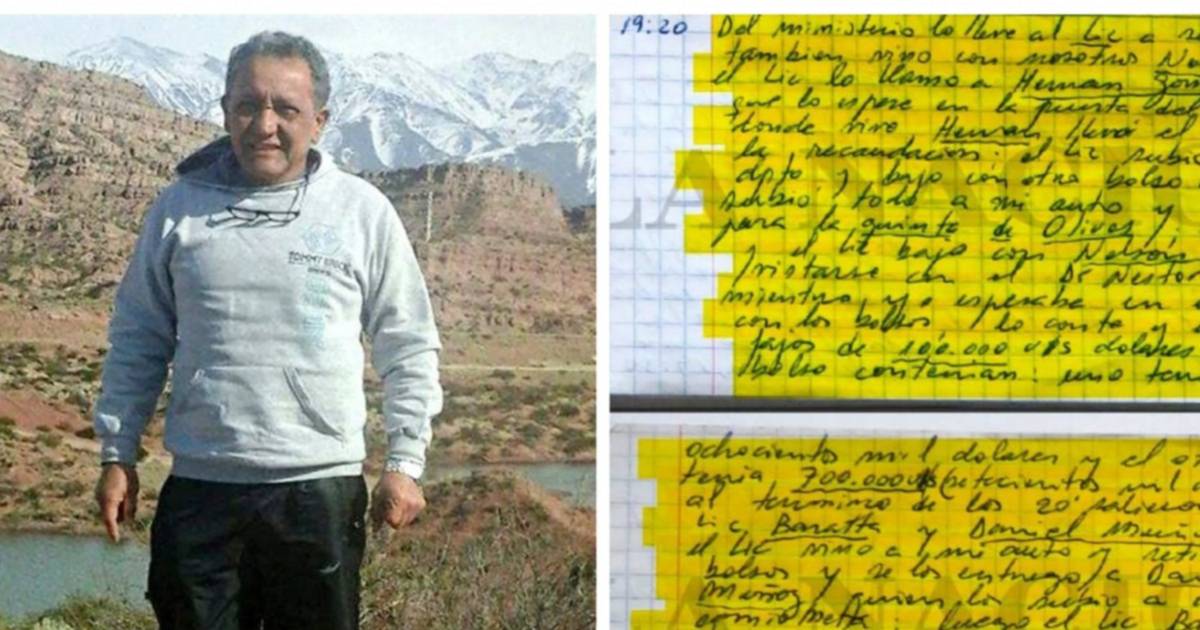 TOMMY
19:20 Del ministerio lo lleve al Lic a
tambien vino con nosotros
el Lic lo llamo a Hernan
que lo espere en la puerta del
donde vive Hernan llevó el
la recaudacion: el Lic
dpto, y bajo con otro bolso
subio todo a mi auto y
para la quinta de Olivos
el Lic bajo con Nelson
con el Dr Nestor
mientras yo esperaba en
con los bolsos, lo conte y
fajos de 100.000 dolares
bolso contenian: uno
ochocientos mil dolares y el
tenia 700.000 (setecientos mil
al termino de los 20 salieron
Lic Baratta y Daniel
el Lic vino a mi auto y
bolsos y se los entrego a
Muñoz quien los subio a
camioneta luego el Lic
LA NACION